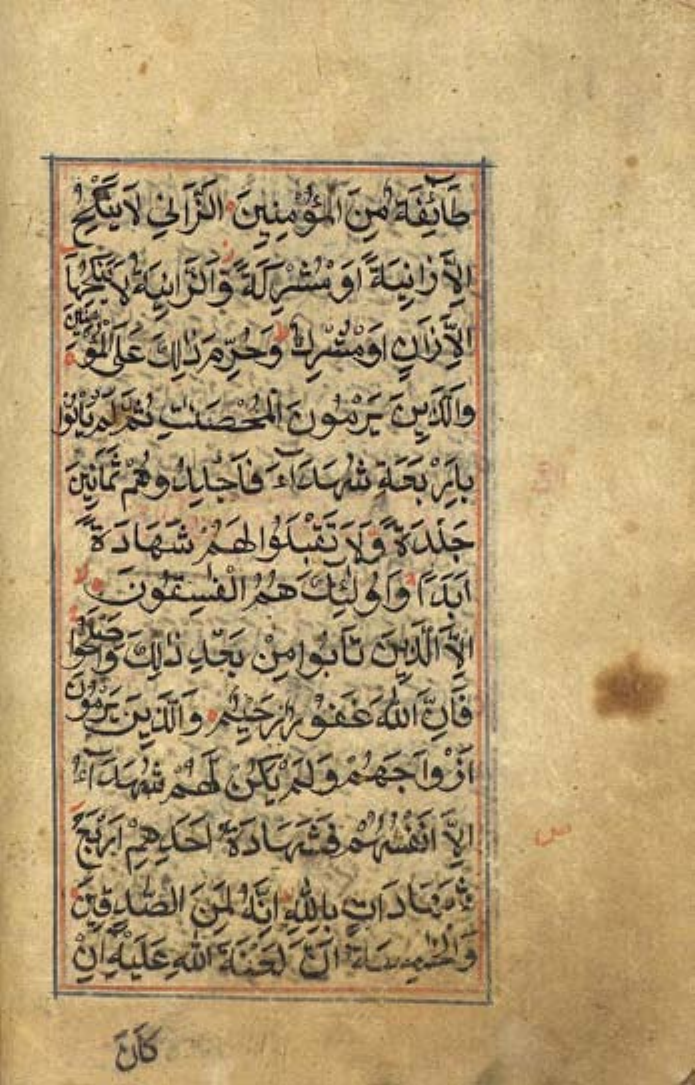 طَآئِفَةٌ مِنَ المُؤْمِنِينَ الَزَّانِي لَا يَنْكِحُ
اِلَّا زَانِيَةً اَوْ مُشْرِكَةً وَّالزَّانِيَةُ لَا يَنْكِحُهَا
اِلَّا زَانٍ اَوْ مُشْرِكٌ وَحُرِّمَ ذٰلِكَ عَلَى الْمُؤْمِنِينَ
وَالَّذِينَ يَرْمُونَ الْمُحْصَنٰتِ ثُمَّ لَمْ يَأْتُوا
بِاَرْبَعَةِ شُهَدَآءَ فَاجْلِدُوهُمْ ثَمَانِينَ
جَلْدَةً وَّلَا تَقْبَلُوا لَهُمْ شَهَادَةً
اَبَدًا وَاُولٰئِكَ هُمُ الْفٰسِقُونَ
اِلَّا الَّذِينَ تَابُوا مِنْ بَعْدِ ذٰلِكَ وَاَصْلَحُوا
فَاِنَّ اللهَ غَفُورٌ رَّحِيمٌ وَالَّذِينَ يَرْمُونَ
اَزْوَاجَهُمْ وَلَمْ يَكُنْ لَهُمْ شُهَدَآءُ
اِلَّا اَنْفُسُهُمْ فَشَهَادَةُ اَحَدِهِمْ اَرْبَعُ
شَهَادَاتٍ بِاللهِ اِنَّهُ لَمِنَ الصّٰدِقِينَ
وَالْخَامِسَةُ اَنَّ لَعْنَةَ اللهِ عَلَيْهِ اِنْ
كَانَ